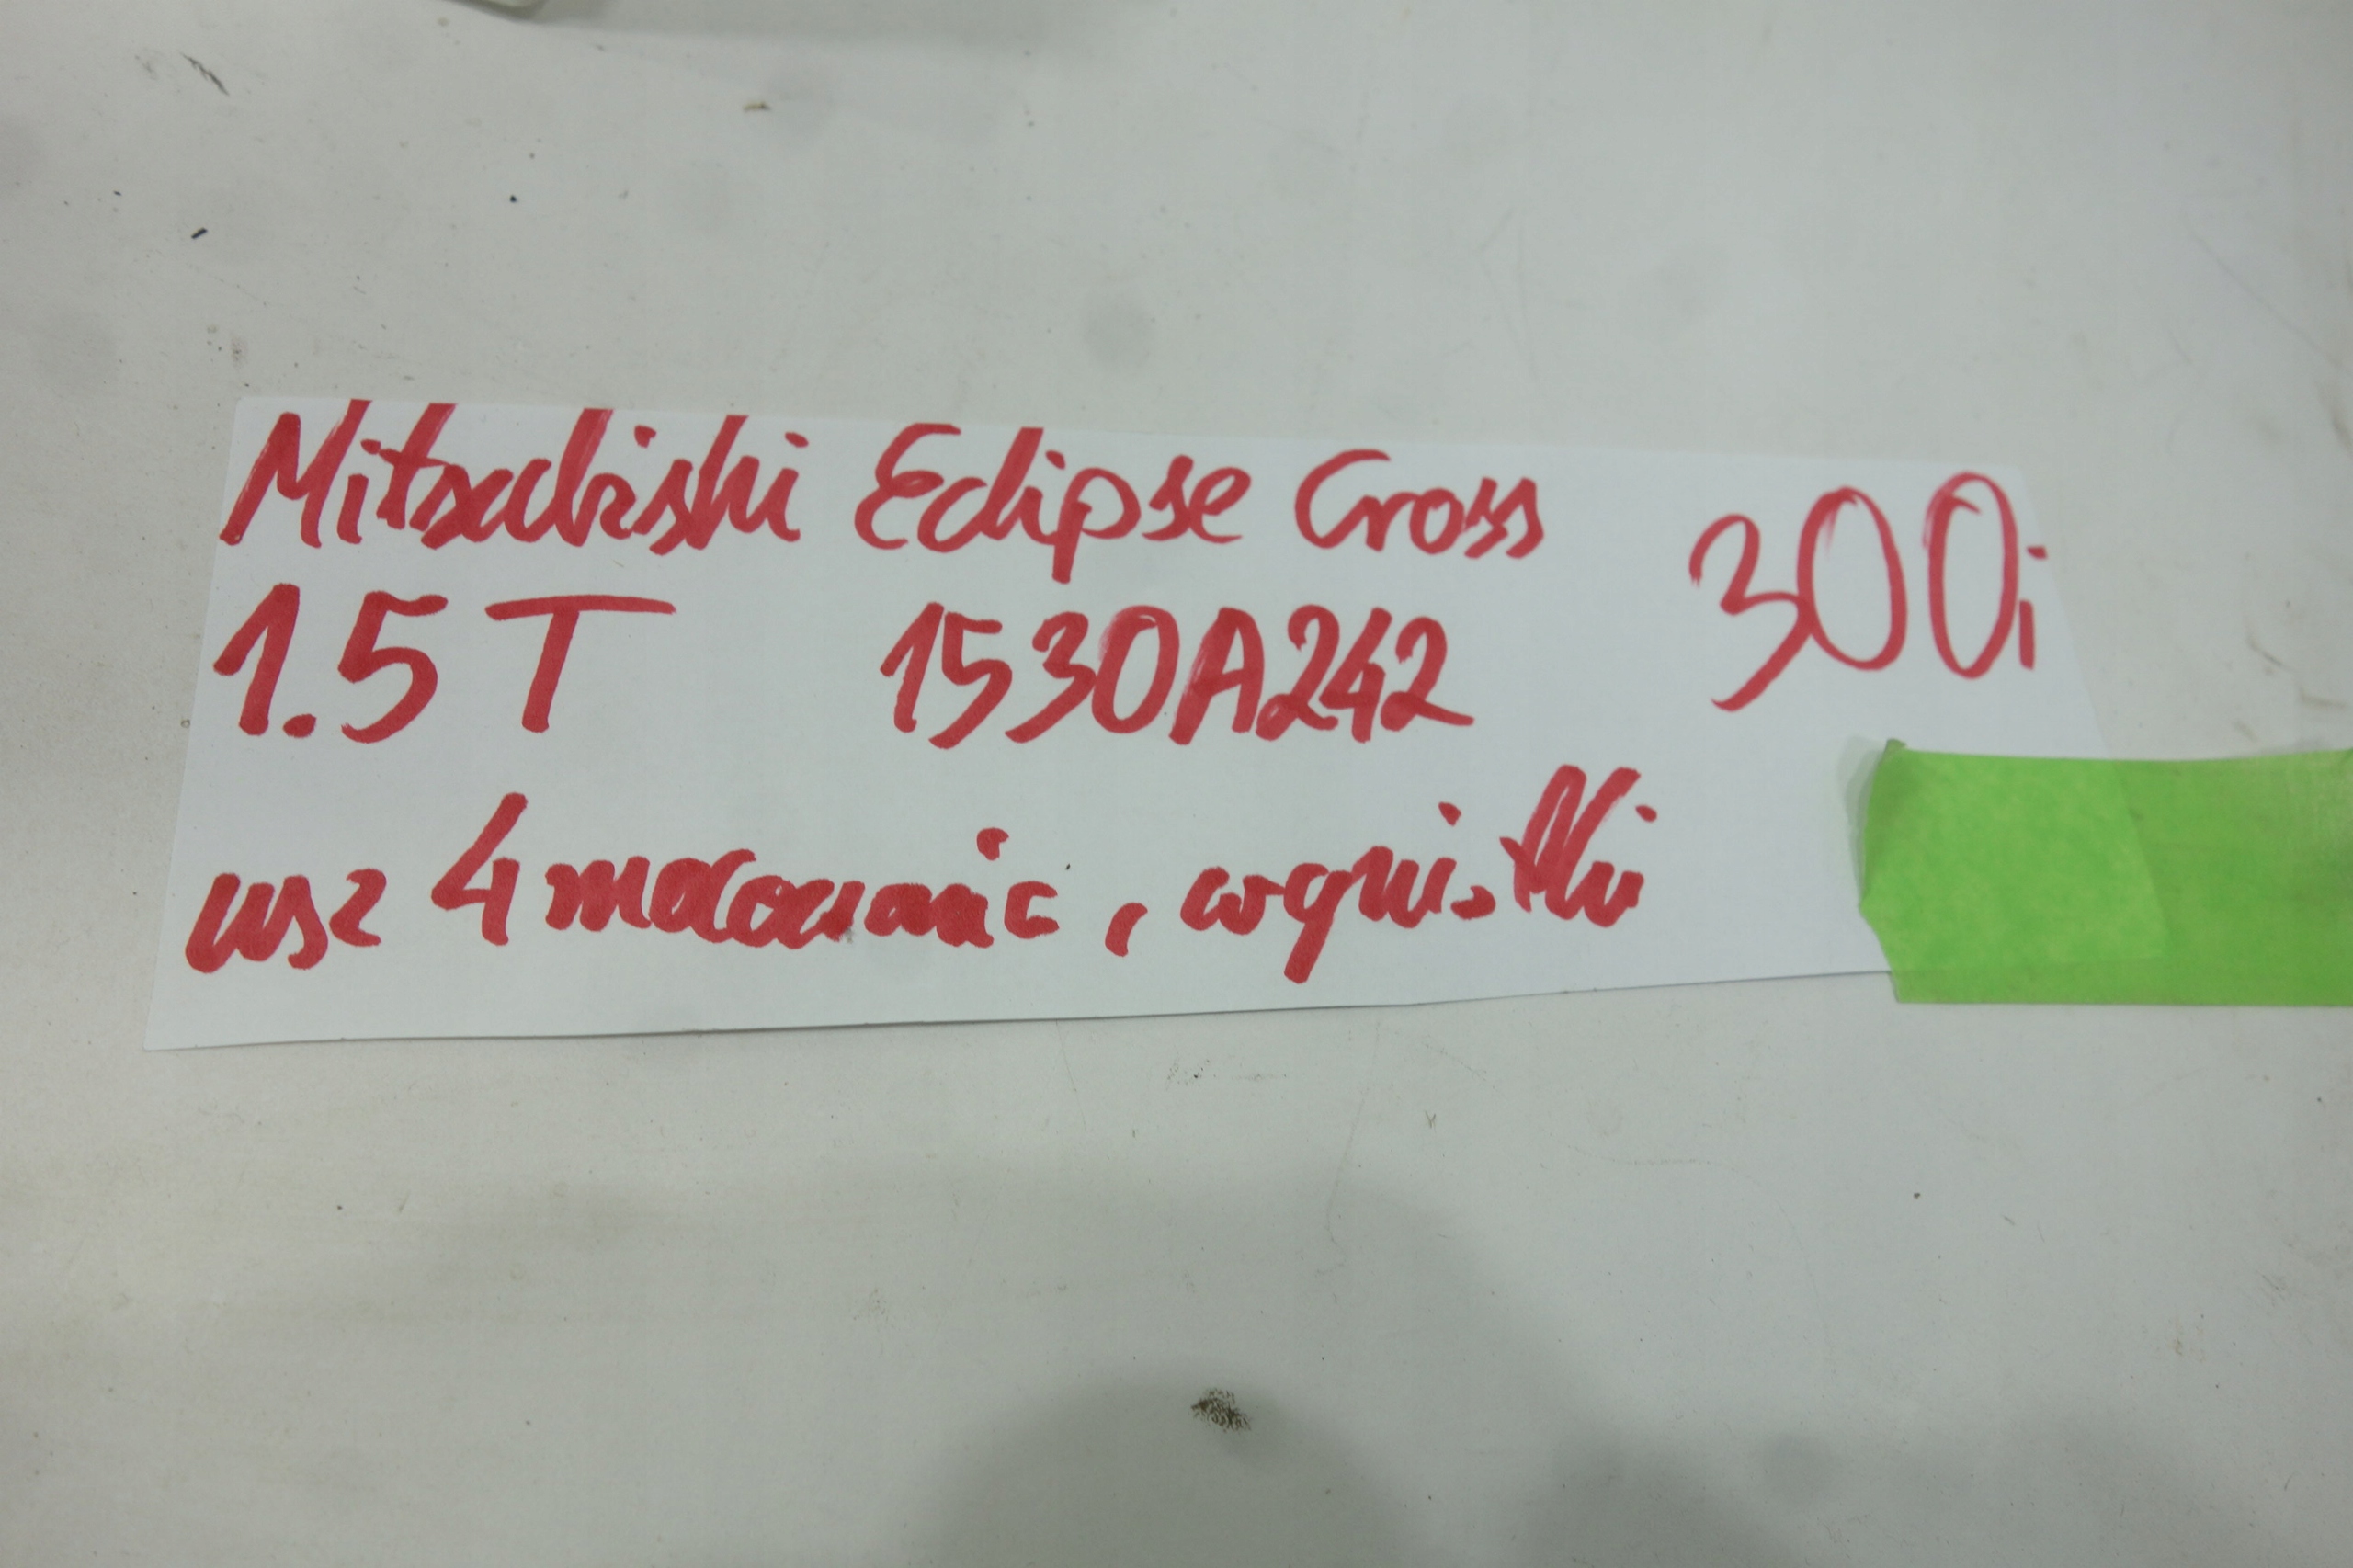 Mitsubishi Eclipse Cross 300i
1.5 T 1530A242
usz 4 mocowanie,